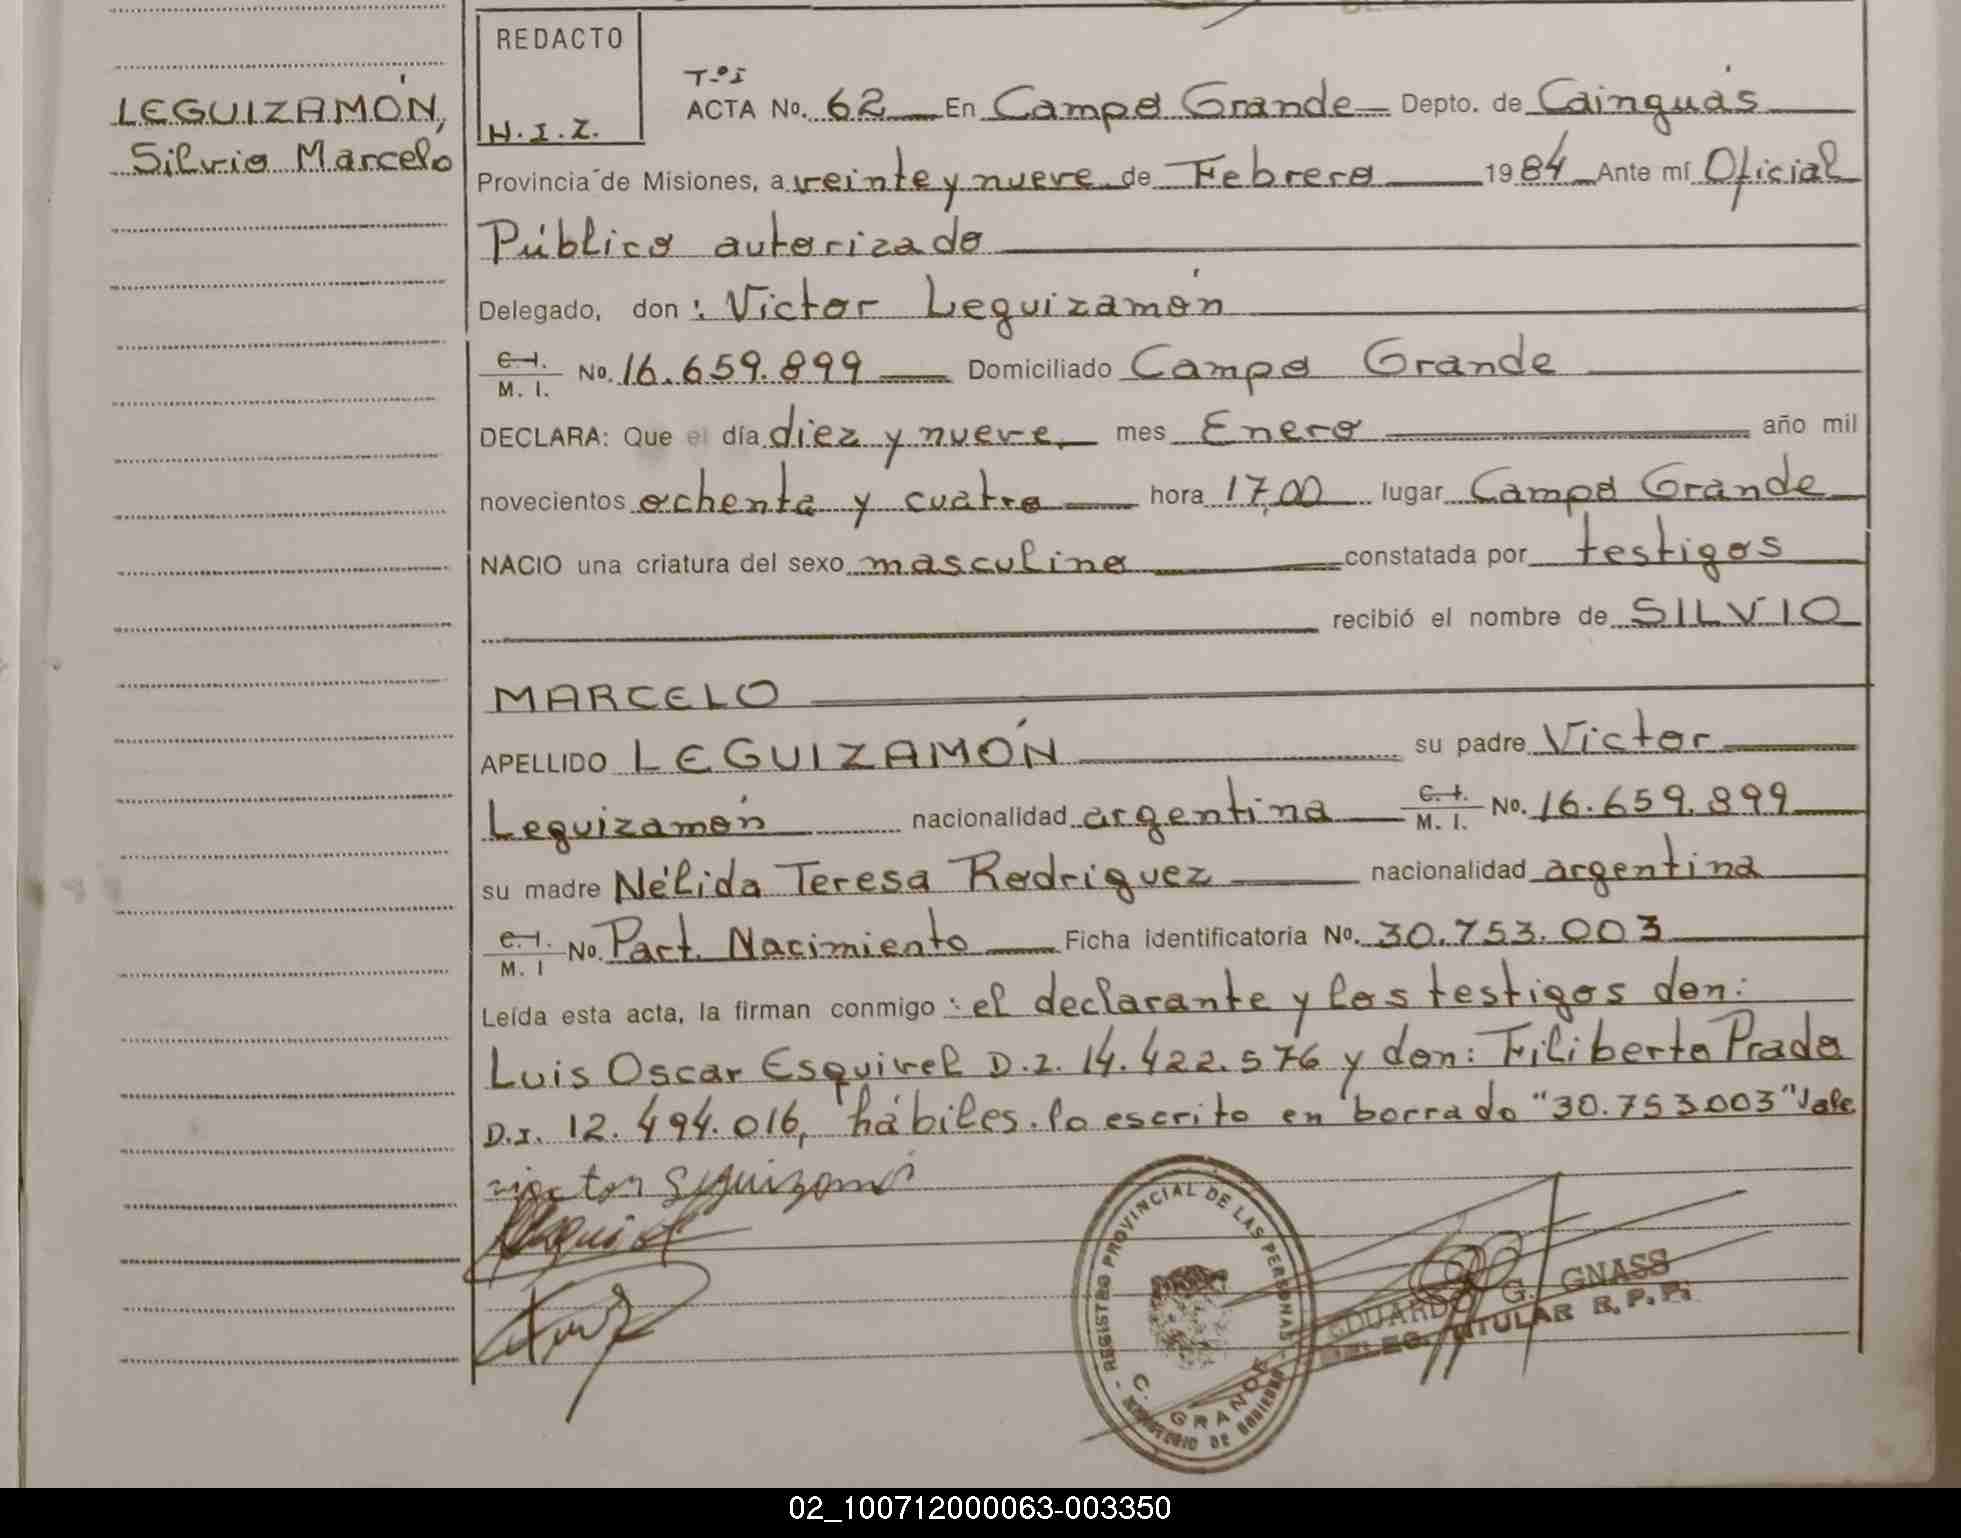 LEGUIZAMÓN,
Silvio Marcelo
REDACTO
H.I.Z.
Tº I
ACTA No. 62 En Campo Grande Depto. de Cainguás
Provincia de Misiones, a veinte y nueve de Febrero 1984 Ante mí Oficial
Público autorizado
Delegado, don: Víctor Leguizamón
C.I. M.I. No. 16.659.899 Domiciliado Campo Grande
DECLARA: Que el día diez y nueve mes Enero año mil
novecientos ochenta y cuatro hora 17,00 lugar Campo Grande
NACIO una criatura del sexo masculino constatada por testigos
recibió el nombre de SILVIO
MARCELO
APELLIDO LEGUIZAMÓN su padre Víctor
Leguizamón nacionalidad argentina C.I. M.I. No. 16.659.899
su madre Nélida Teresa Rodriguez nacionalidad argentina
C.I. M.I No. Part. Nacimiento Ficha identificatoria No. 30.753.003
Leída esta acta, la firman conmigo: el declarante y los testigos don:
Luis Oscar Esquivel D.I. 14.422.576 y don: Filiberto Prado
D.I. 12.494.016, hábiles. lo escrito en borrado "30.753.003" Vale
REGISTRO PROVINCIAL DE LAS PERSONAS - MINISTERIO DE GOBIERNO -
C. GRANDE
EDUARDO G. GNASS
DELEG. TITULAR R.P.P.
02_100712000063-003350